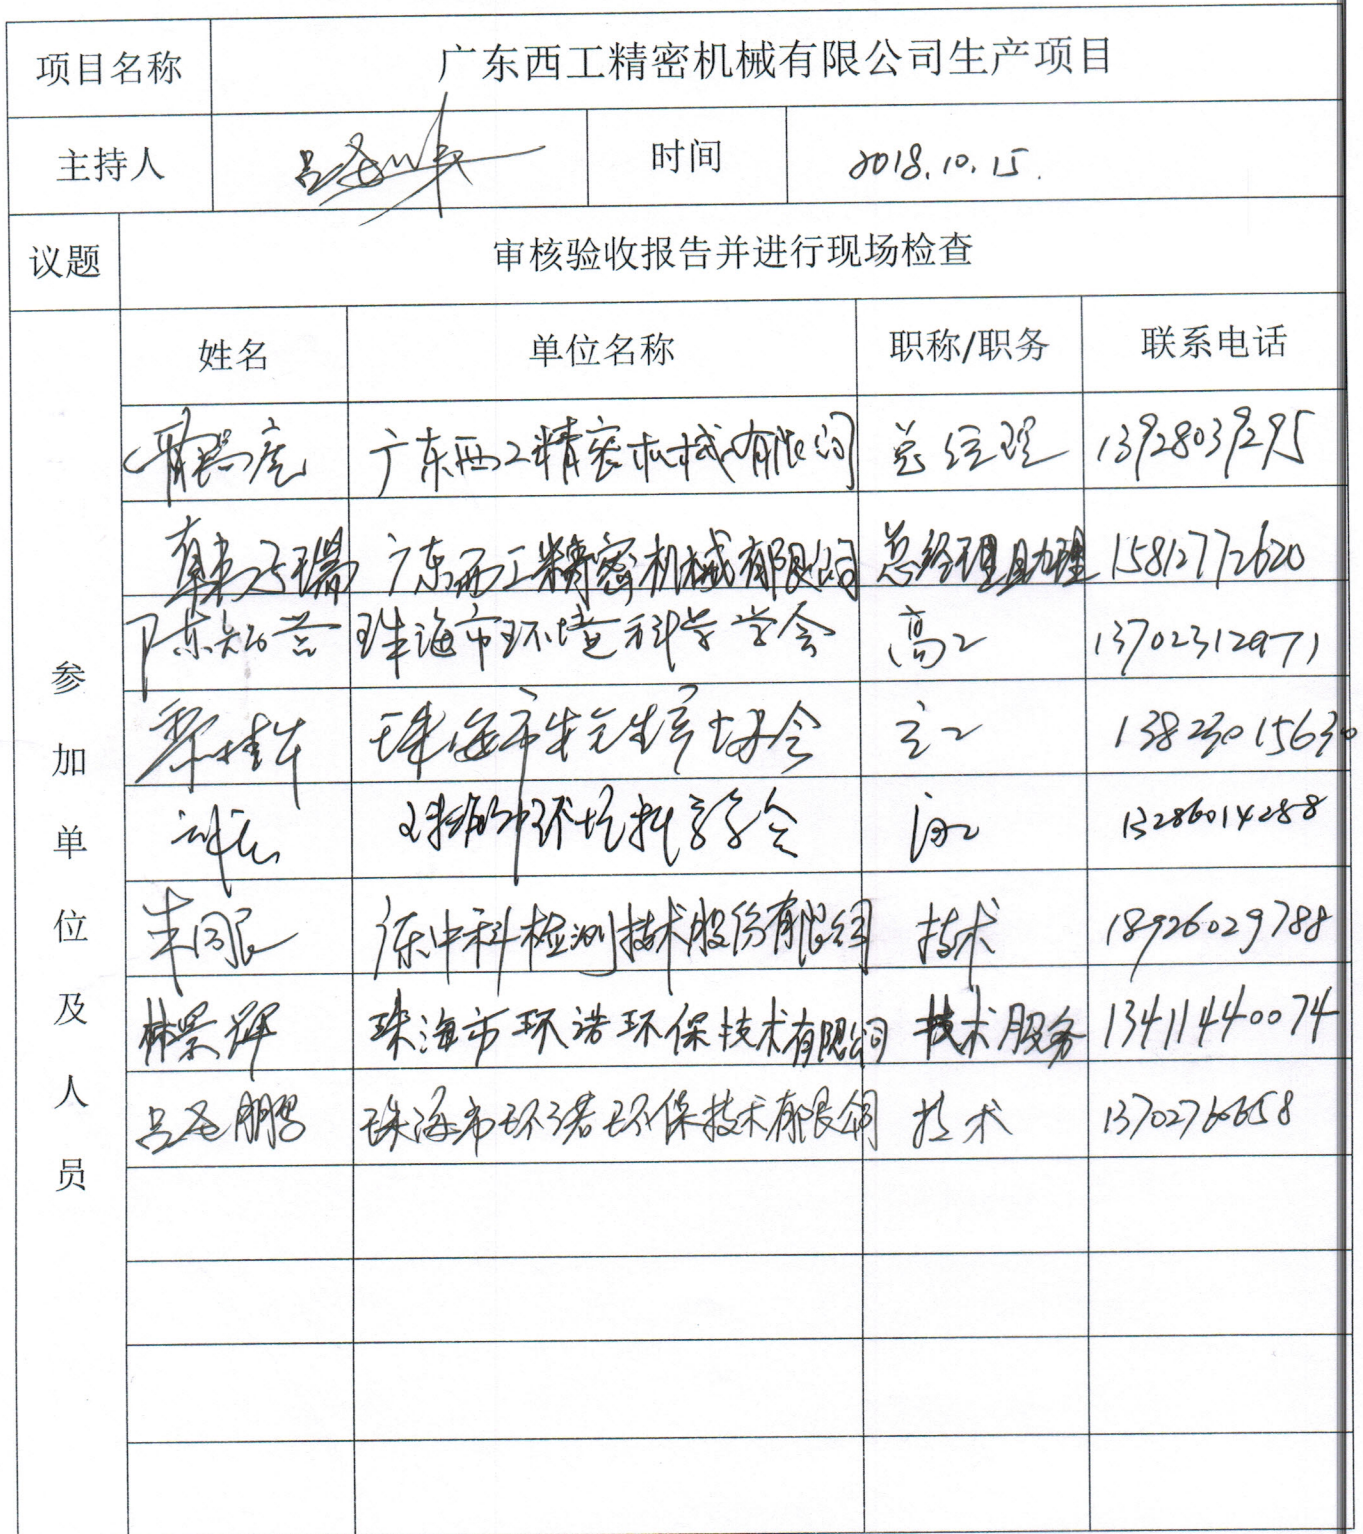 项目名称 广东西工精密机械有限公司生产项目
主持人 时间 2018.10.15.
议题 审核验收报告并进行现场检查
参加单位及人员
姓名 单位名称 职称/职务 联系电话
广东西工精密机械有限公司 总经理 13928039295
广东西工精密机械有限公司 总经理助理 15812772620
珠海市环境科学学会 高工 13702312971
珠海市清洁生产协会 高工 13823015630
珠海市环境科学学会 高工 13286014288
朱国 广东中科检测技术股份有限公司 技术 18926029788
林景辉 珠海市环诺环保技术有限公司 技术服务 13411440074
吕圣鹏 珠海市环诺环保技术有限公司 技术